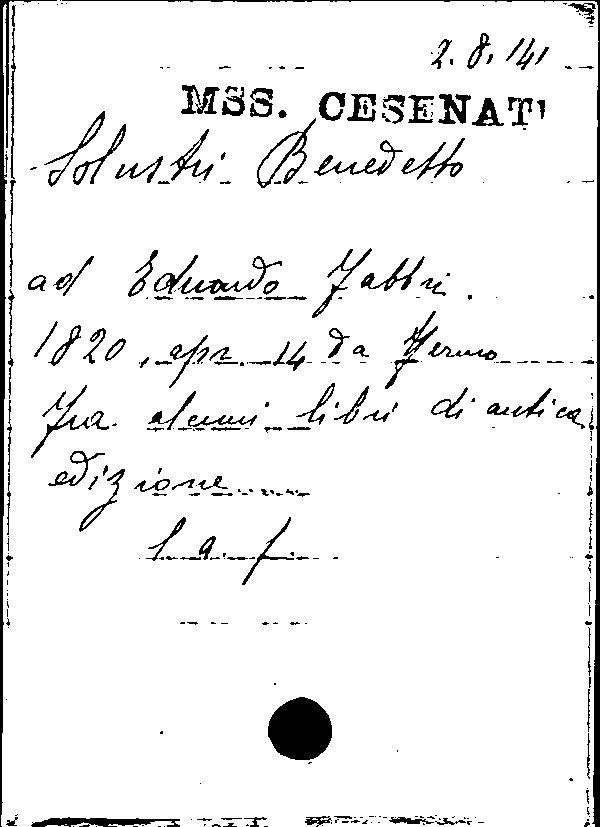 2. 8. 141
MSS. CESENATI
Solustri Benedetto
ad Eduardo Fabbri.
1820, apr. 14 da Fermo
Fra alcuni libri di antica
edizione
l. a. f.